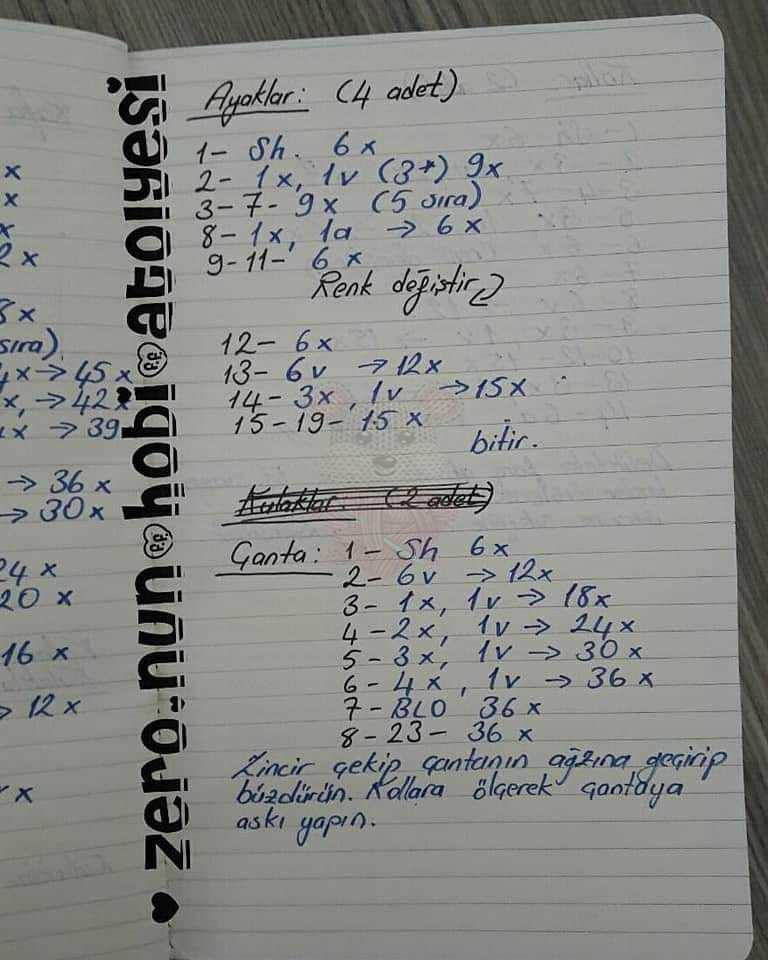 x
x
x
2x
8x
sıra)
4x → 45x
x, → 42x
x → 39
→ 36x
→ 30x
24x
20 x
16 x
→ 12 x
x
zero.nun hobi atolyesi
Ayaklar: (4 adet)
1- Sh. 6x
2- 1x, 1v (3*) 9x
3-7- 9x (5 sıra)
8- 1x, 1a → 6x
9-11- 6x
Renk değiştir
12- 6x
13- 6v → 12x
14- 3x, 1v → 15x
15-19- 15x
bitir.
Kulaklar: (2 adet)
Çanta: 1- Sh 6x
2- 6v → 12x
3- 1x, 1v → 18x
4- 2x, 1v → 24x
5- 3x, 1v → 30x
6- 4x, 1v → 36x
7- BLO 36x
8-23- 36x
Zincir çekip çantanın ağzına geçirip
büzdürün. Kollara ölçerek çantaya
askı yapın.